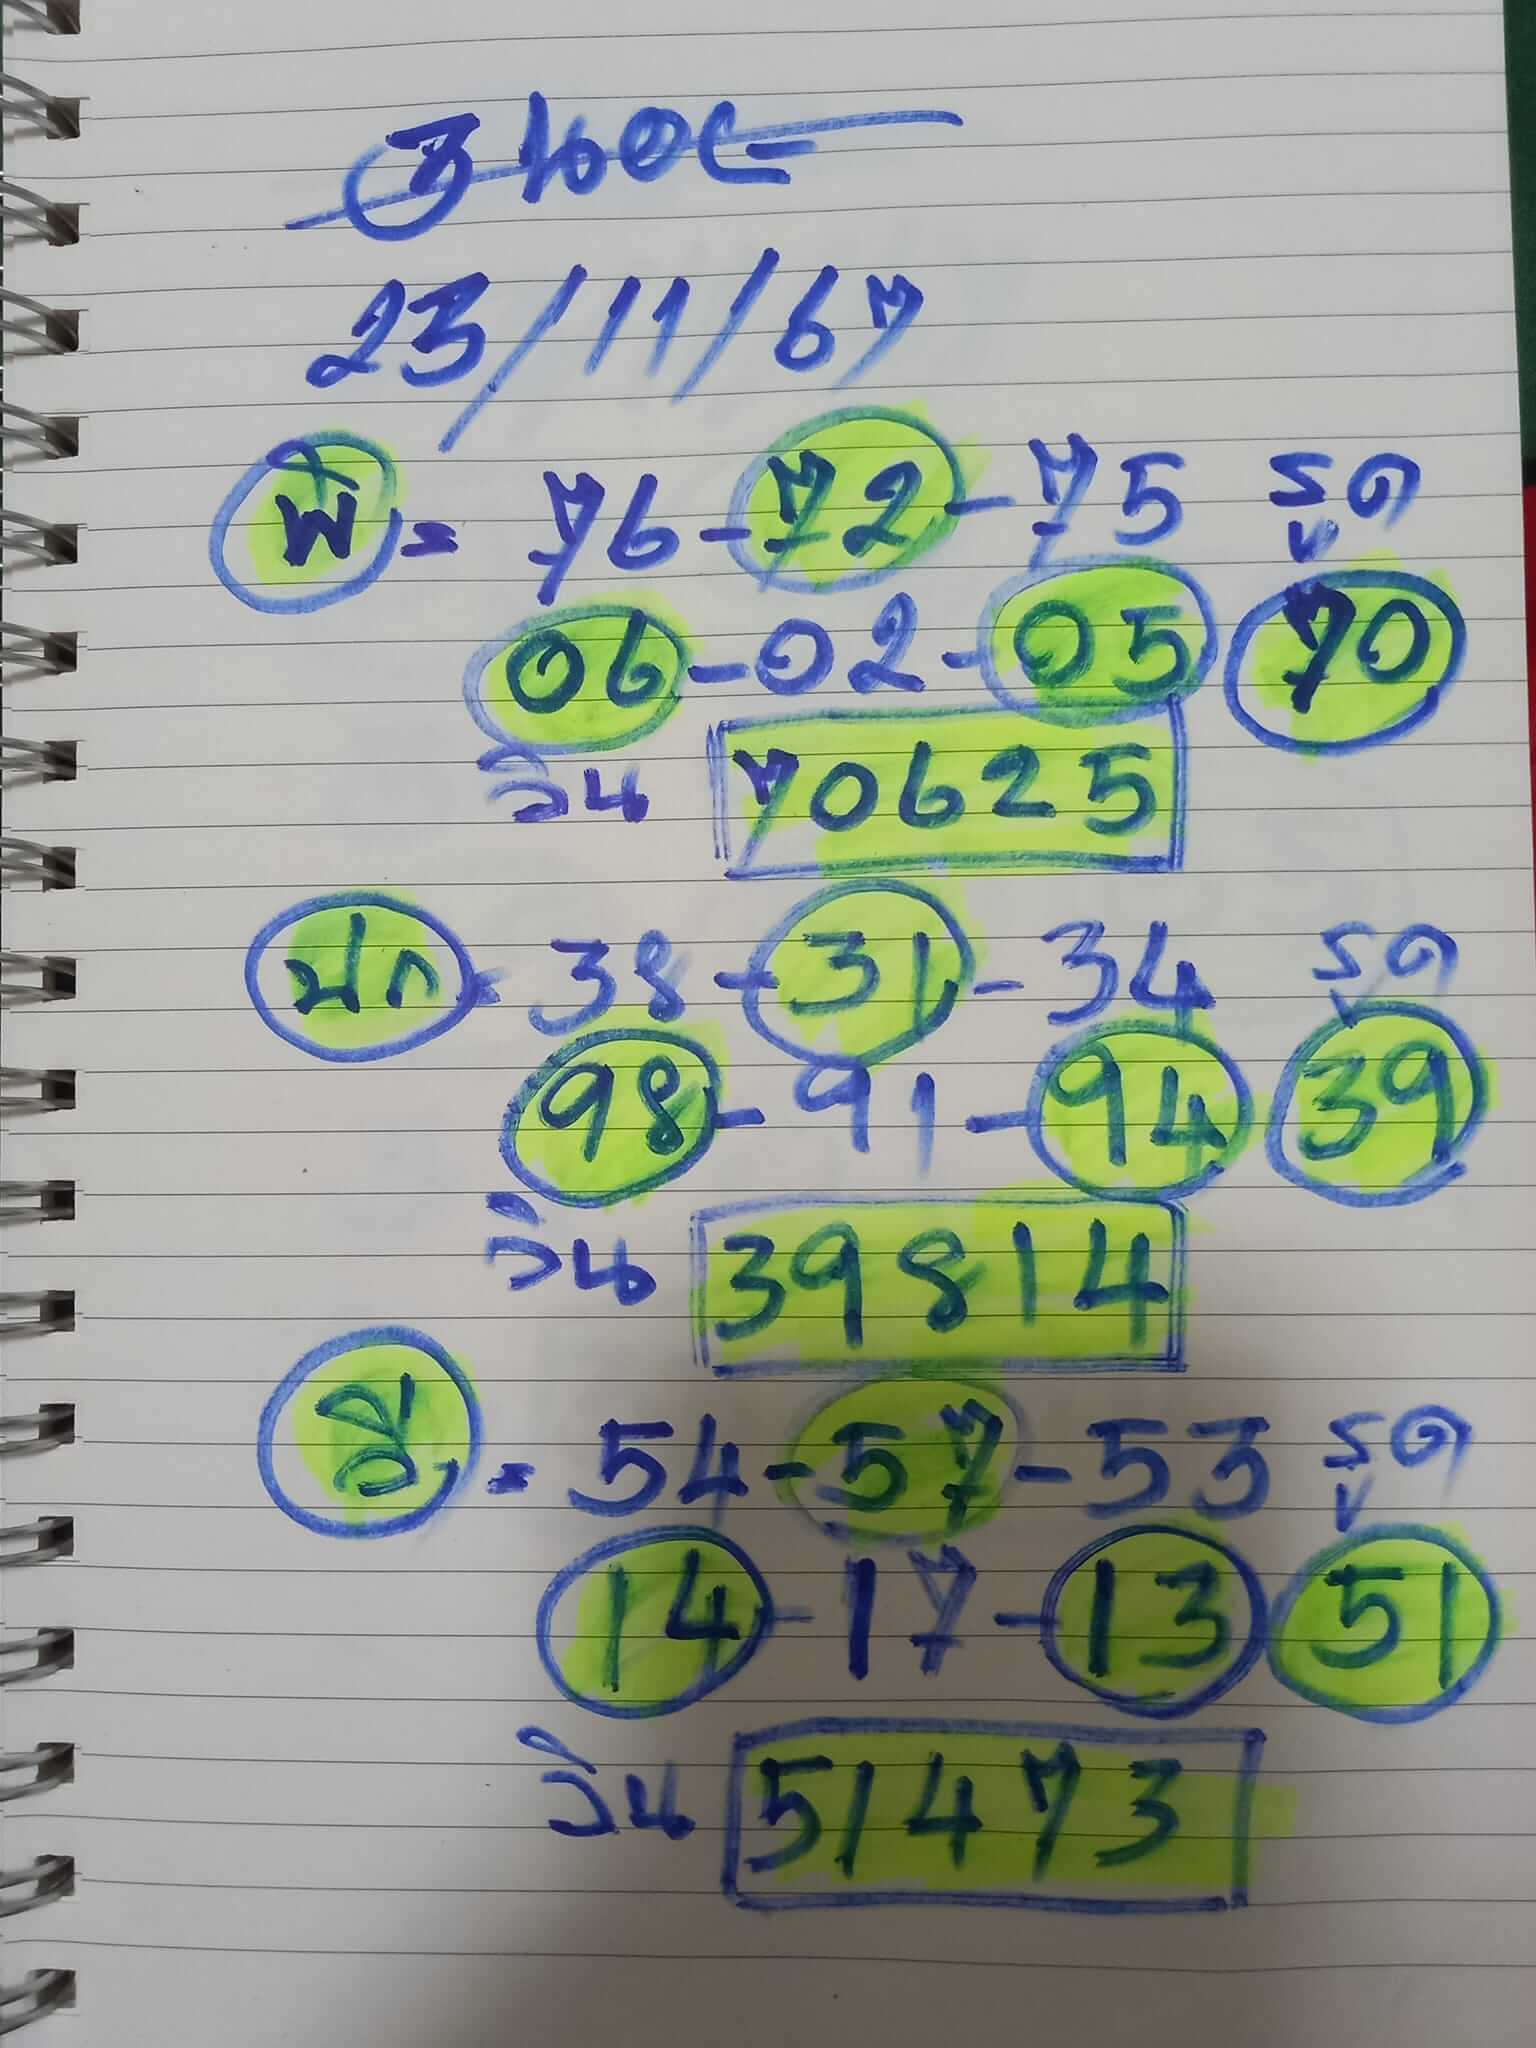 3 ฬอย
23/11/67
พิ = 76-72-75 รูด
06-02-05 70
วิน 70625
ปก = 38-31-34 รูด
98-91-94 39
วิน 39814
วี = 54-57-53 รูด
14-17-13 51
วิน 51473